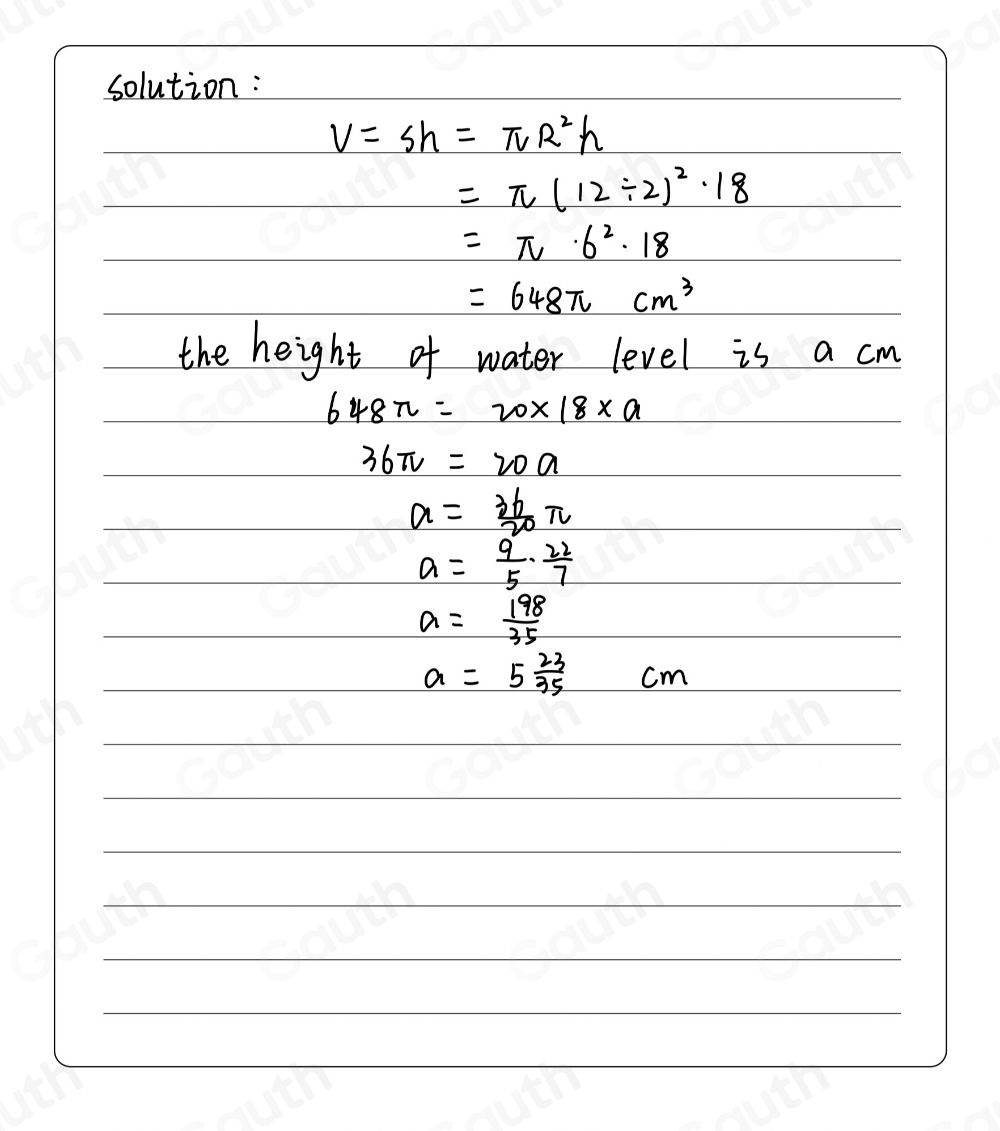 solution:
V = sh = πR²h
= π(12÷2)²·18
= π·6²·18
= 648π cm³
the height of water level is a cm
648π = 20×18×a
36π = 20a
a = 36/20 π
a = 9/5 · 22/7
a = 198/35
a = 5 23/35 cm